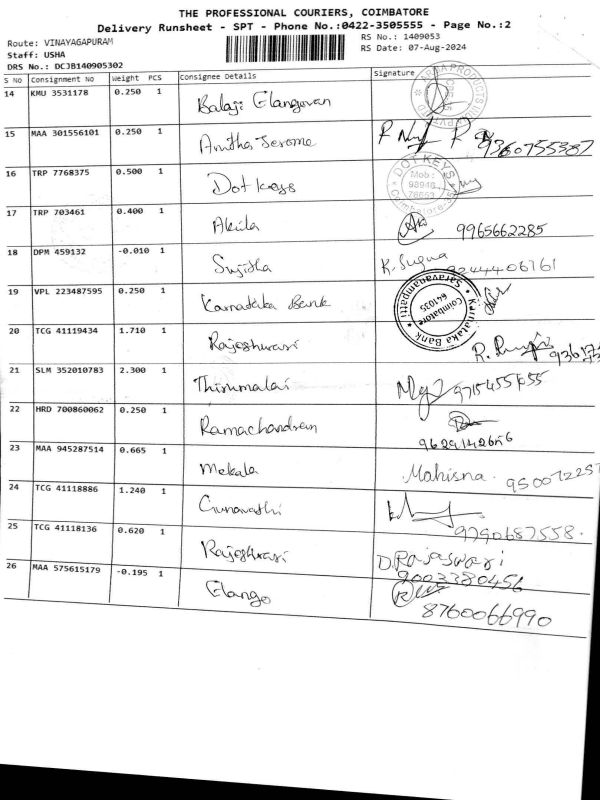 THE PROFESSIONAL COURIERS, COIMBATORE
Delivery Runsheet - SPT - Phone No.:0422-3505555 - Page No.:2
Route: VINAYAGAPURAM
RS No.: 1409053
Staff: USHA
RS Date: 07-Aug-2024
DRS No.: DCJB140905302
S No Consignment No Weight PCS Consignee Details Signature
14 KMU 3531178 0.250 1 Balaji Elangovan
15 MAA 301556101 0.250 1 Anitha Jerome 9360755387
16 TRP 7768375 0.500 1 Dot Keys
DOT KEYS
Mob:
17 TRP 703461 0.400 1 Akila 9965662285
18 DPM 459132 -0.010 1 Sujitha K. Suguna
19 VPL 223487595 0.250 1 Karnataka Bank
Karnataka Bank
Saravanampatti
Coimbatore
641035
20 TCG 41119434 1.710 1 Rajeshwari
21 SLM 352010783 2.300 1 Thirumalai
22 HRD 700860062 0.250 1 Ramachandran
23 MAA 945287514 0.665 1 Mekala Mahisna.
24 TCG 41118886 1.240 1 Gunavathi 9790687558.
25 TCG 41118136 0.620 1 Rajeshwari D.Rajaswari
9003380456
26 MAA 575615179 -0.195 1 Elango
8760066990